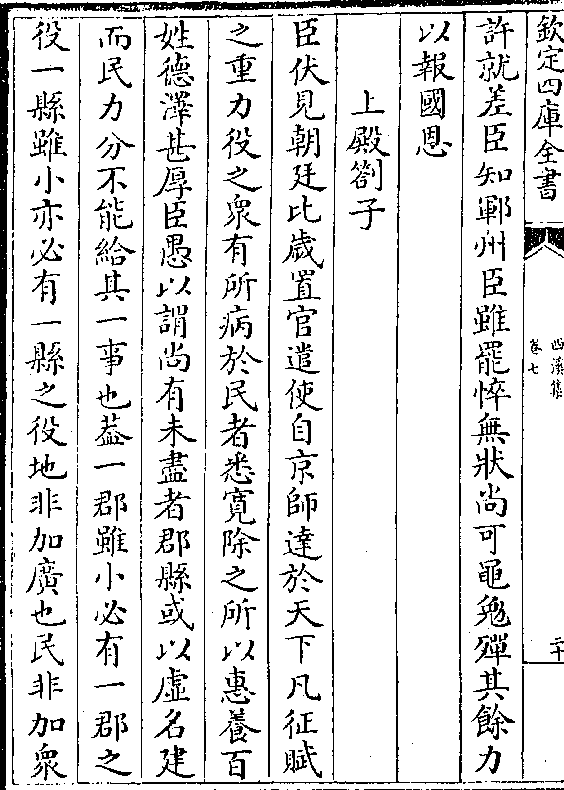 欽定四庫全書
西溪集
卷七
二十
許就差臣知鄆州臣雖罷悴無狀尚可黽勉殫其餘力
以報國恩
上殿劄子
臣伏見朝廷比歲置官遣使自京師達於天下凡征賦
之重力役之衆有所病於民者悉寛除之所以惠養百
姓德澤甚厚臣愚以謂尚有未盡者郡縣或以虛名建
而民力分不能給其一事也葢一郡雖小必有一郡之
役一縣雖小亦必有一縣之役地非加廣也民非加衆